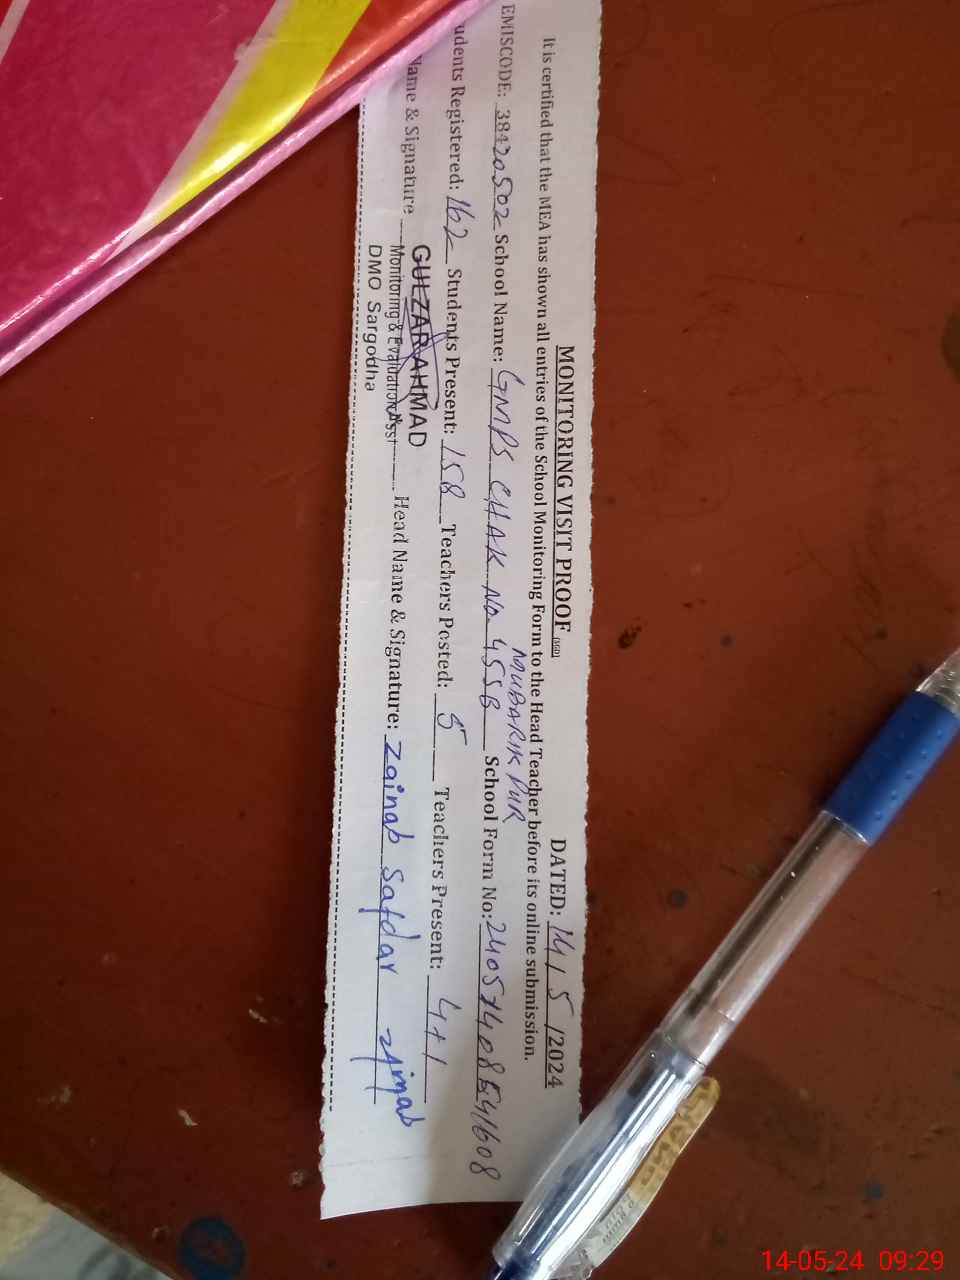 MONITORING VISIT PROOF (SGD) DATED: 14/5/2024
It is certified that the MEA has shown all entries of the School Monitoring Form to the Head Teacher before its online submission.
MUBARIK PUR
EMISCODE: 38420502 School Name: GMPS CHAK No. 45SB School Form No:
udents Registered: 162 Students Present: 158 Teachers Posted: 5 Teachers Present: 4+1
Name & Signature Head Name & Signature: Zainab Safdar Zainab
GULZAR AHMAD
Monitoring & Evaluation Asst
DMO Sargodha
14-05-24 09:29